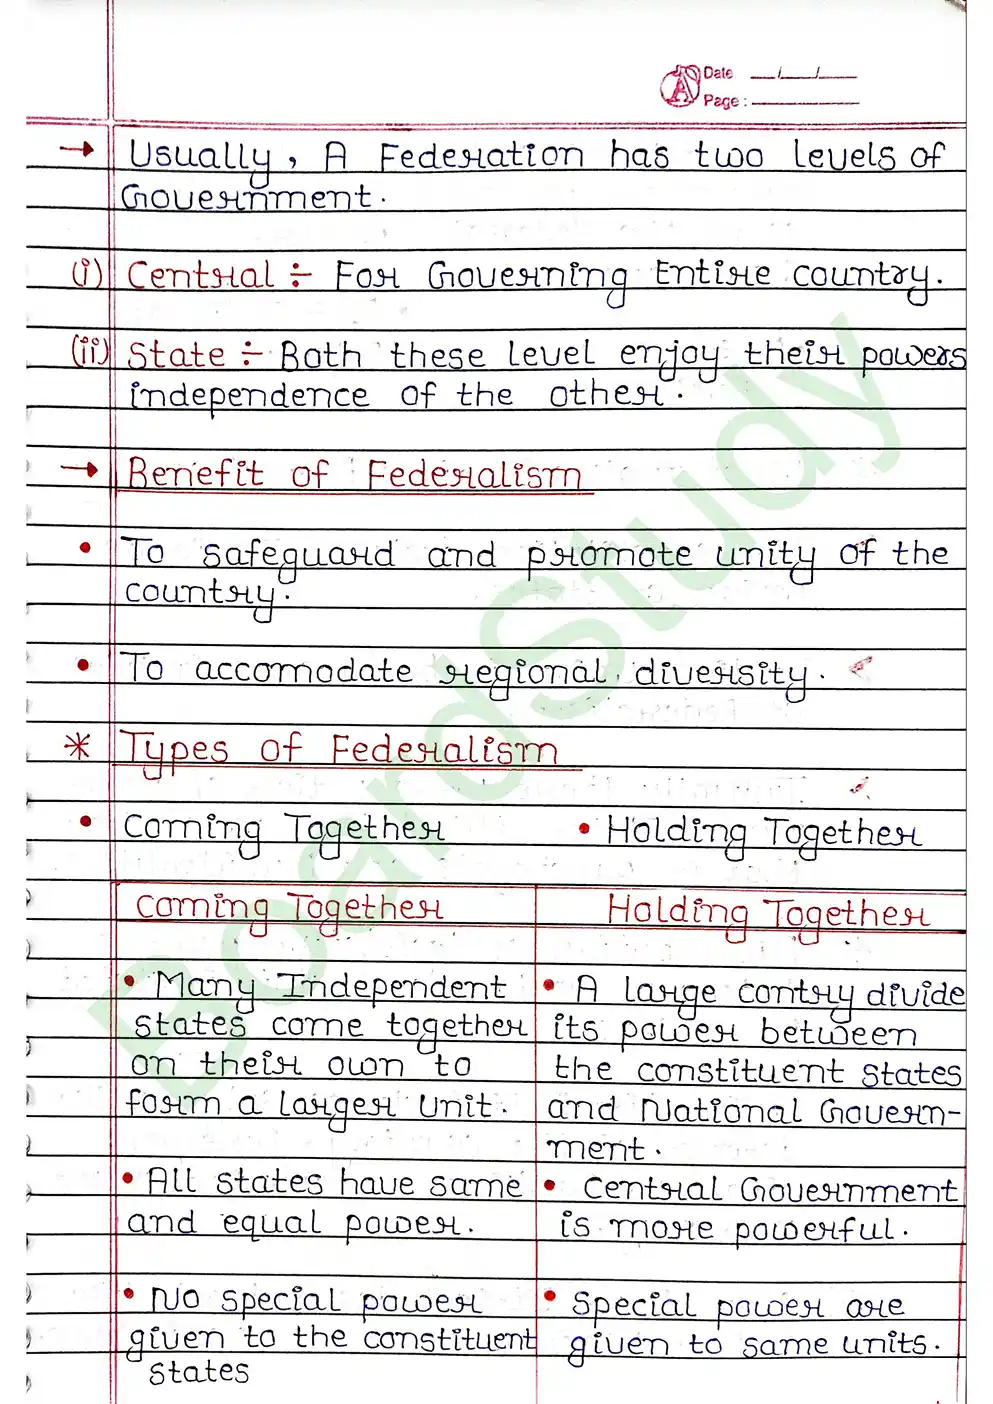 Date __/__/__
Page : ________
→ Usually, A Federation has two levels of
Government.
(i) Central ÷ For Governing Entire country.
(ii) State ÷ Both these level enjoy their powers
independence of the other.
→ Benefit of Federalism
• To safeguard and promote unity of the
country.
• To accomodate regional diversity.
* Types of Federalism
• Coming Together • Holding Together
Coming Together
• Many Independent
states come together
on their own to
form a larger unit.
• All states have same
and equal power.
• No special power
given to the constituent
states
Holding Together
• A large contry divide
its power between
the constituent states
and National Govern-
ment.
• Central Government
is more powerful.
• Special power are
given to same units.
BoardStudy